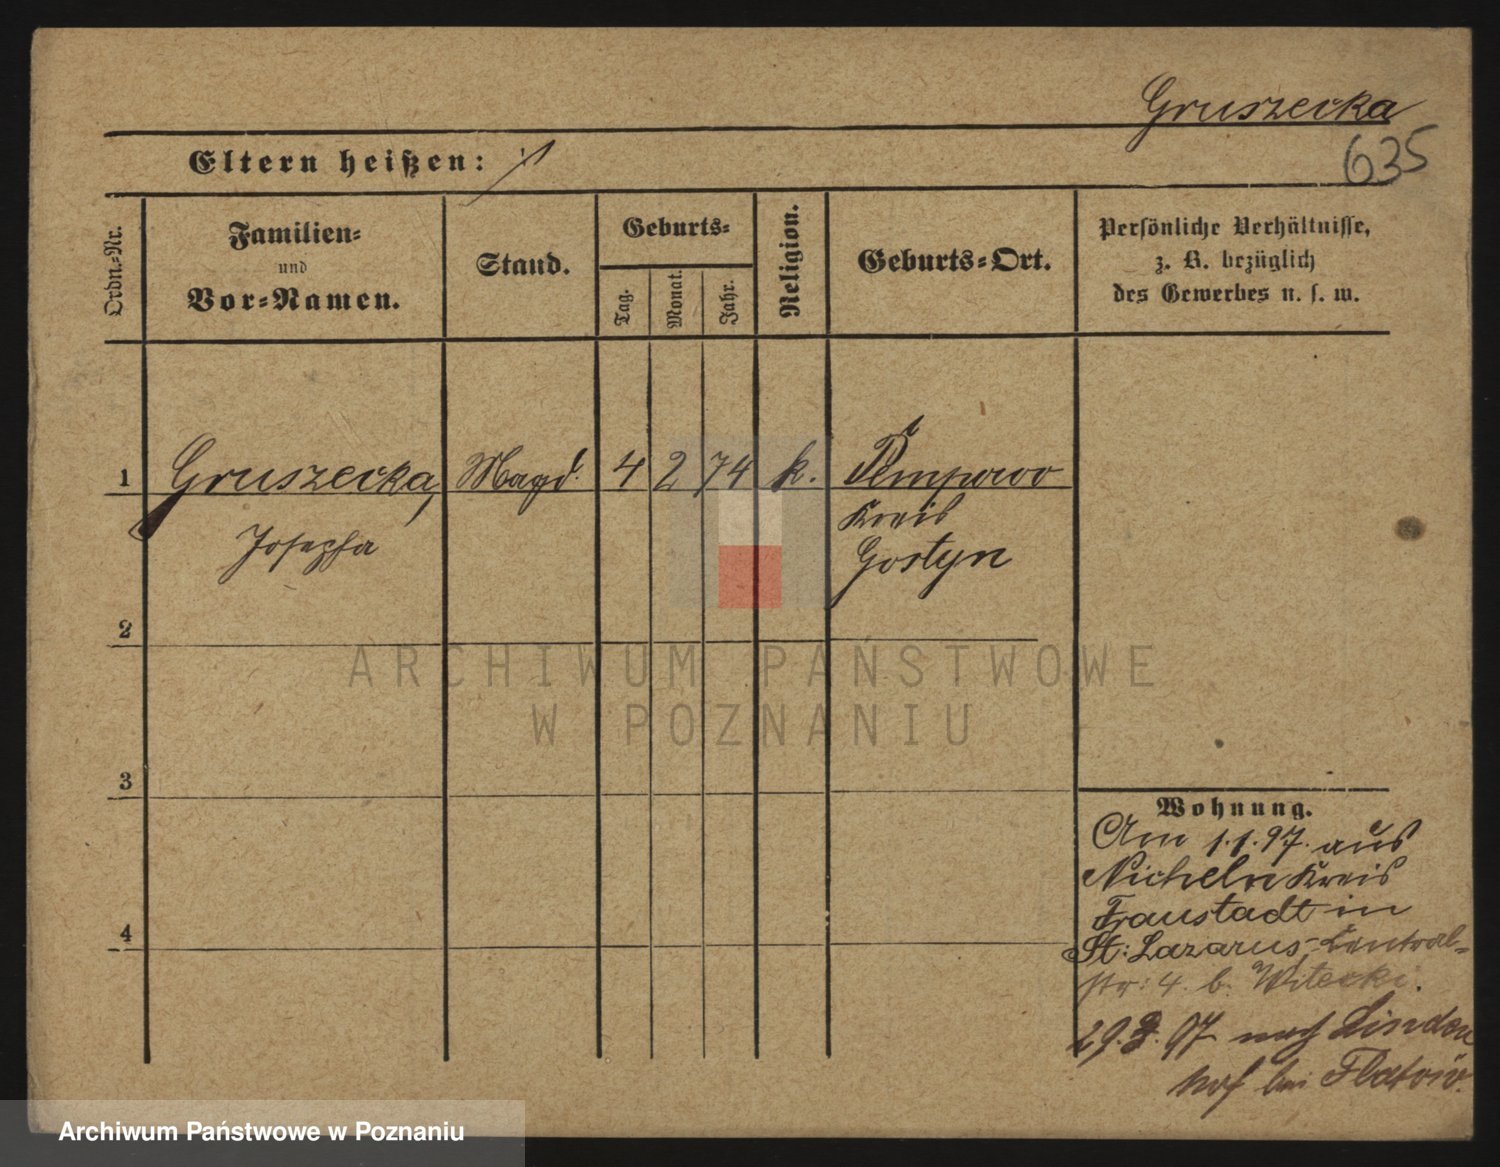 Gruszecka
635
Eltern heißen:
Ordn.-Nr.
Familien-
und
Vor-Namen.
Stand.
Geburts-
Tag.
Monat.
Jahr.
Religion.
Geburts-Ort.
Persönliche Verhältnisse,
z. B. bezüglich
des Gewerbes u. s. w.
1 Gruszecka, Magd. 4 2 74 k. Pempowo
Josepha
Kreis
Gostyn
2
ARCHIWUM PAŃSTWOWE
W POZNANIU
3
Wohnung.
Am 1.1.97. aus
Nicheln Kreis
Fraustadt in
St: Lazarus, Central-
str: 4. b. Witecki.
4
29. 97 nach Linden
hof bei Flatow.
Archiwum Państwowe w Poznaniu